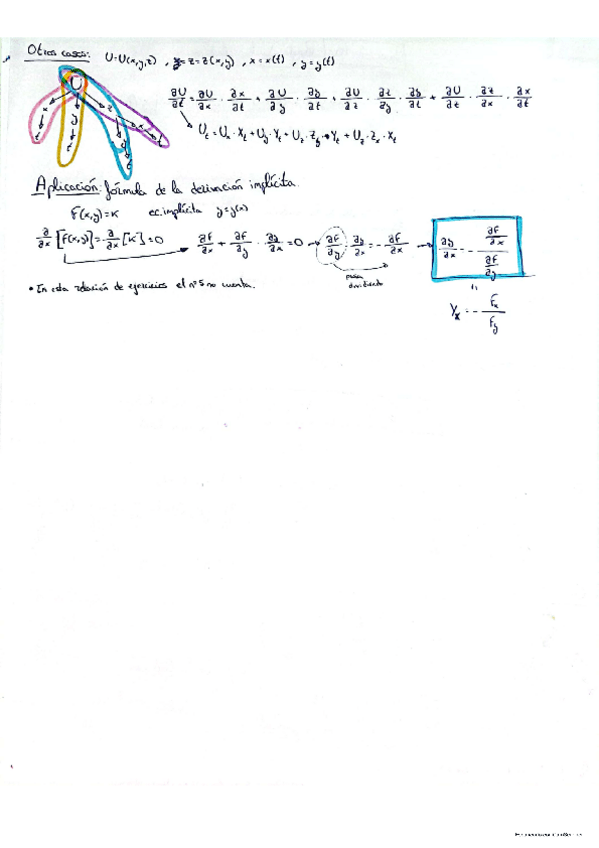 Otros casos: U=U(x,y,z) , z=z(x,y) , x=x(t) , y=y(t)
U
x y z
t t y x
t t
∂U/∂t = ∂U/∂x · ∂x/∂t + ∂U/∂y · ∂y/∂t + ∂U/∂z · ∂z/∂y · ∂y/∂t + ∂U/∂z · ∂z/∂x · ∂x/∂t
Ut = Ux · Xt + Uy · Yt + Uz · Zy · Yt + Uz · Zx · Xt
Aplicación: fórmula de la derivación implícita.
F(x,y)=K ec.implícita y=y(x)
∂/∂x [F(x,y)] = ∂/∂x [K] = 0 → ∂F/∂x + ∂F/∂y · ∂y/∂x = 0 → ∂F/∂y · ∂y/∂x = - ∂F/∂x → ∂y/∂x = - (∂F/∂x)/(∂F/∂y)
pasa dividiendo
• En esta relación de ejercicios el nº5 no cuenta.
Yx = - Fx/Fy